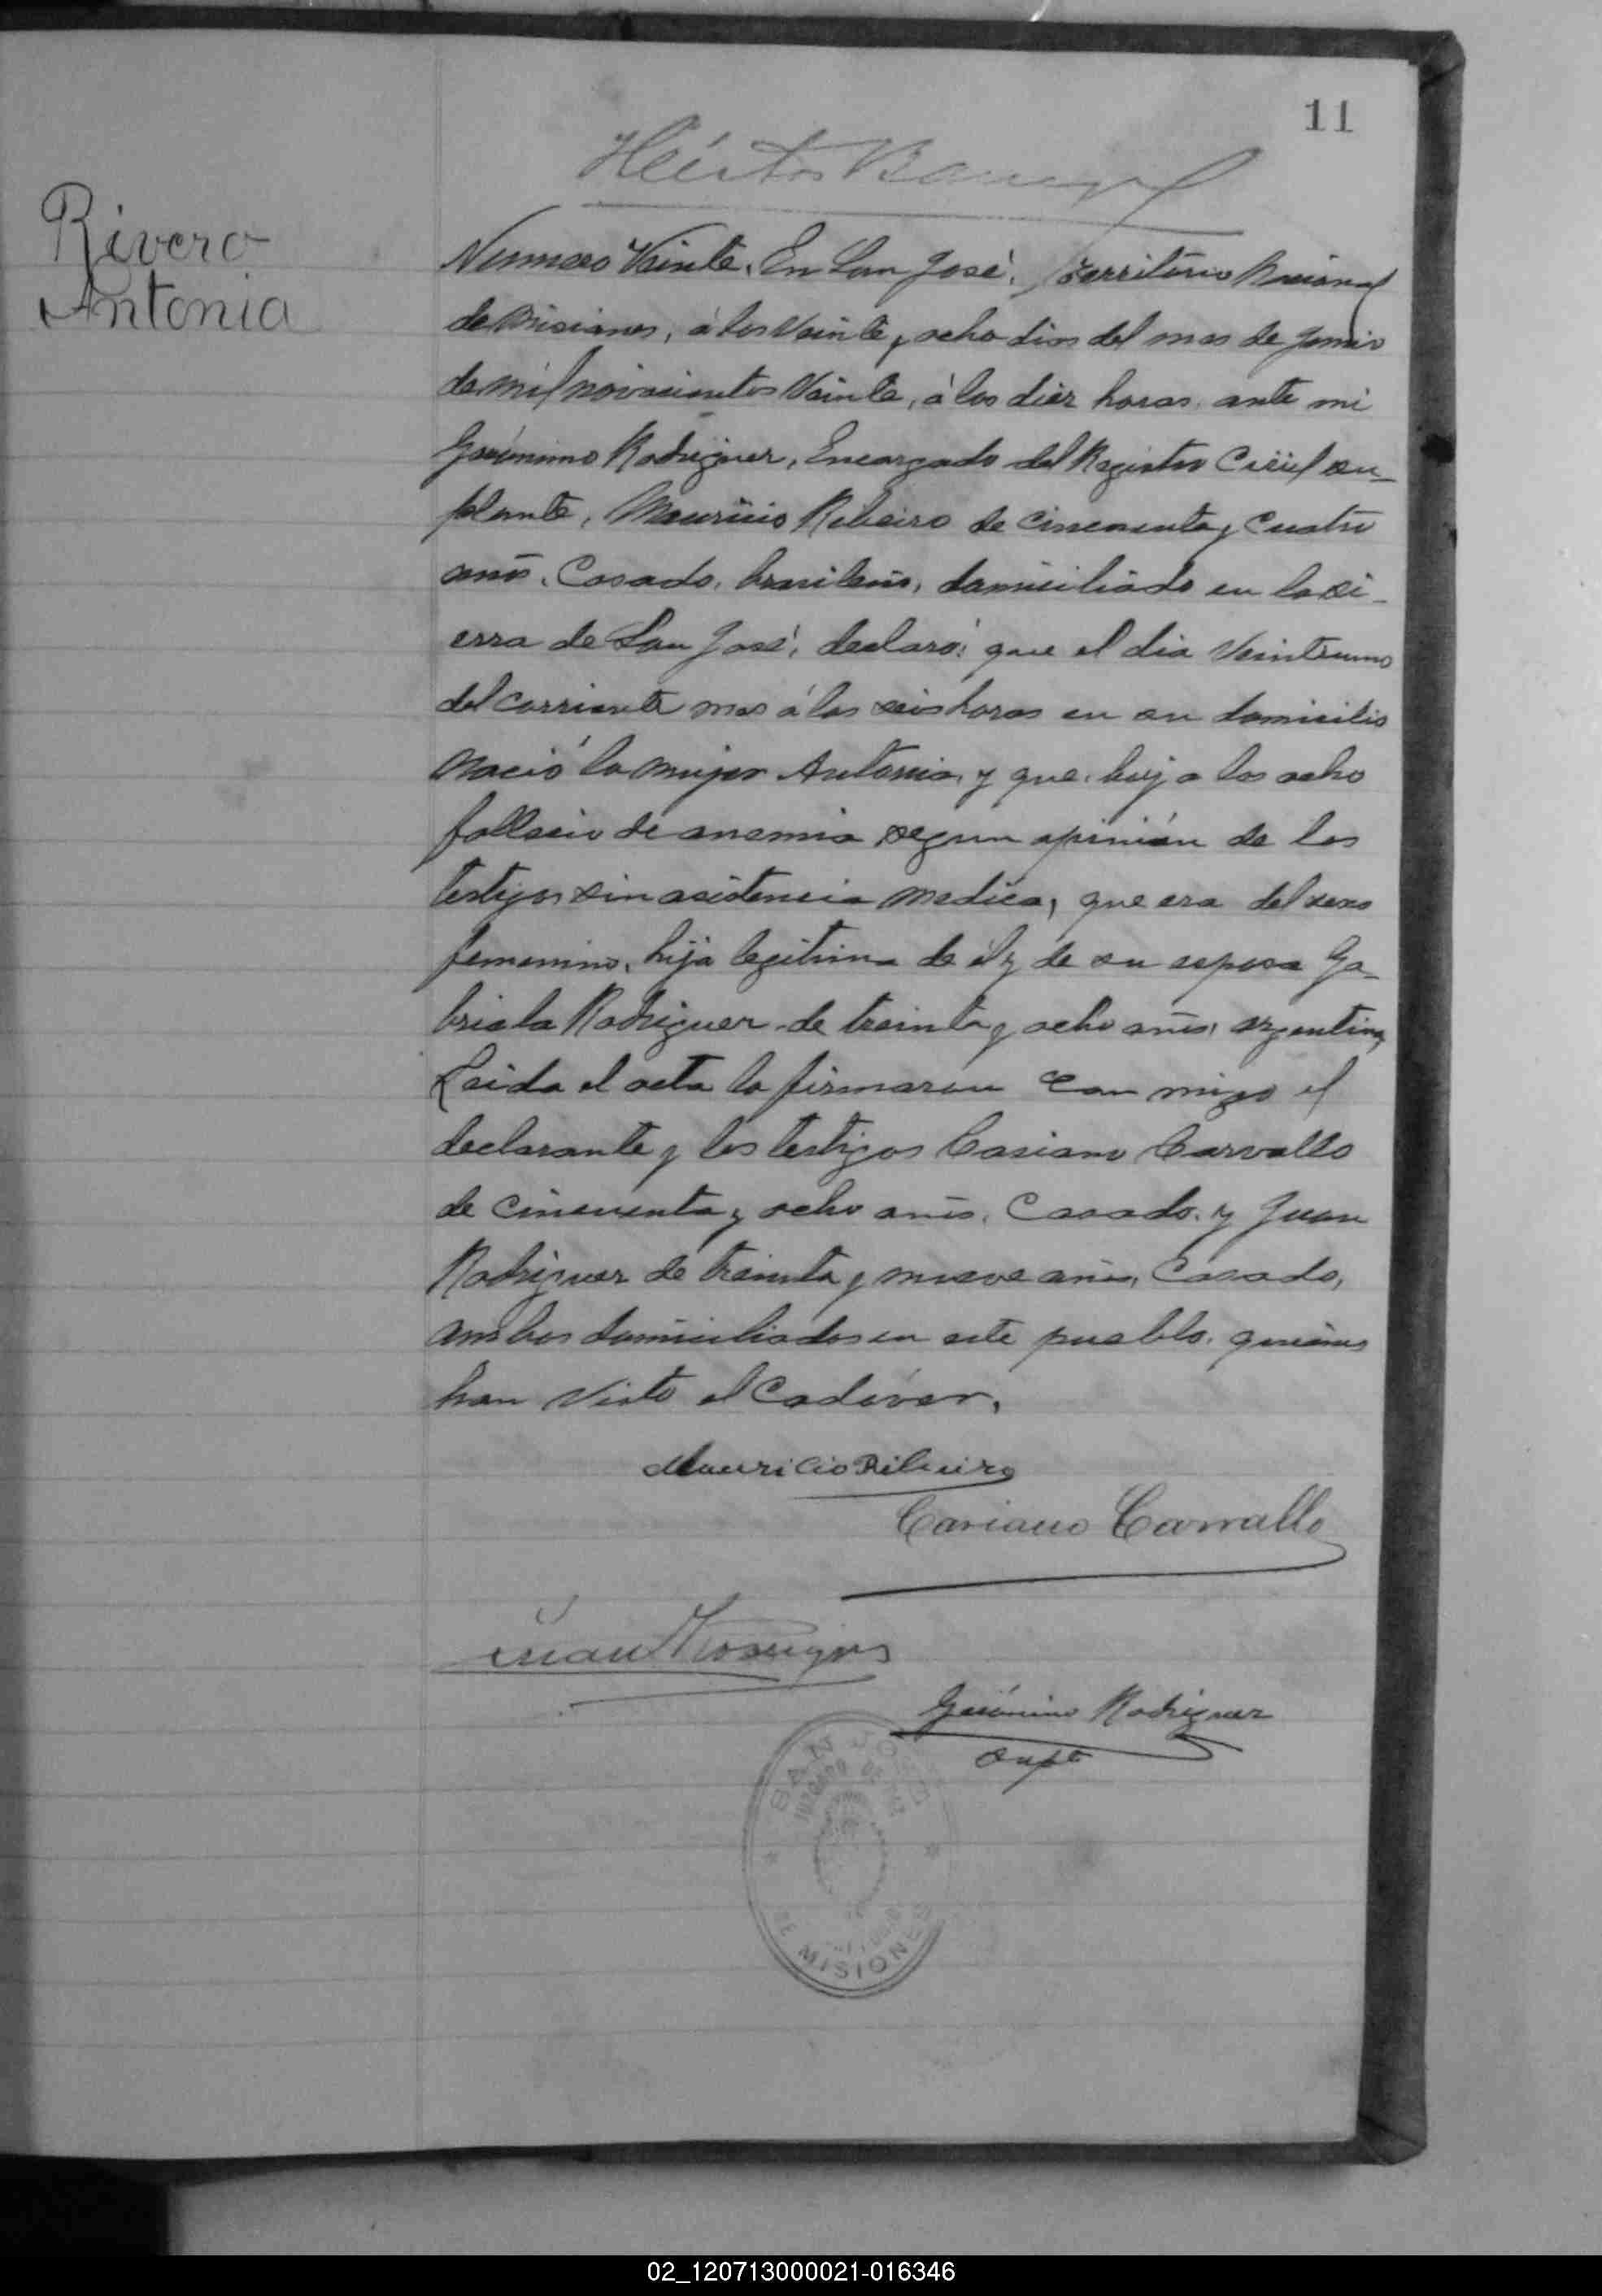 11
Héctor
Rivero
Antonia
Numero Veinte. En San José, Territorio Nacional
de Misiones, á los Veinte y ocho dias del mes de Junio
de mil novecientos Veinte, á las diez horas, ante mi
Gerónimo Rodriguez, Encargado del Registro Civil su-
plente, Mauricio Ribeiro de cincuenta y cuatro
años, Casado, brasileño, domiciliado en la Si-
erra de San José, declaró: que el dia Veintiuno
del corriente mes á las seis horas en su domicilio
nació la mujer Antonia, y que hoy a las ocho
falleció de anemia segun opinión de los
testigos sin asistencia medica, que era del sexo
femenino, hija legitima de él y de su esposa Ga-
briela Rodriguez de treinta y ocho años, argentina,
Leida el acta la firmaron con migo el
declarante y los testigos Casiano Carvallo
de cincuenta y ocho años, Casado, y Juan
Rodriguez de treinta y nueve años, Casado,
ambos domiciliados en este pueblo, quienes
han visto el Cadáver.
Mauricio Ribeiro
Casiano Carvallo
Juan Rodrigues
Gerónimo Rodriguez
Supte
SAN JOSE
JUZGADO DE PAZ
DE MISIONES
02_120713000021-016346